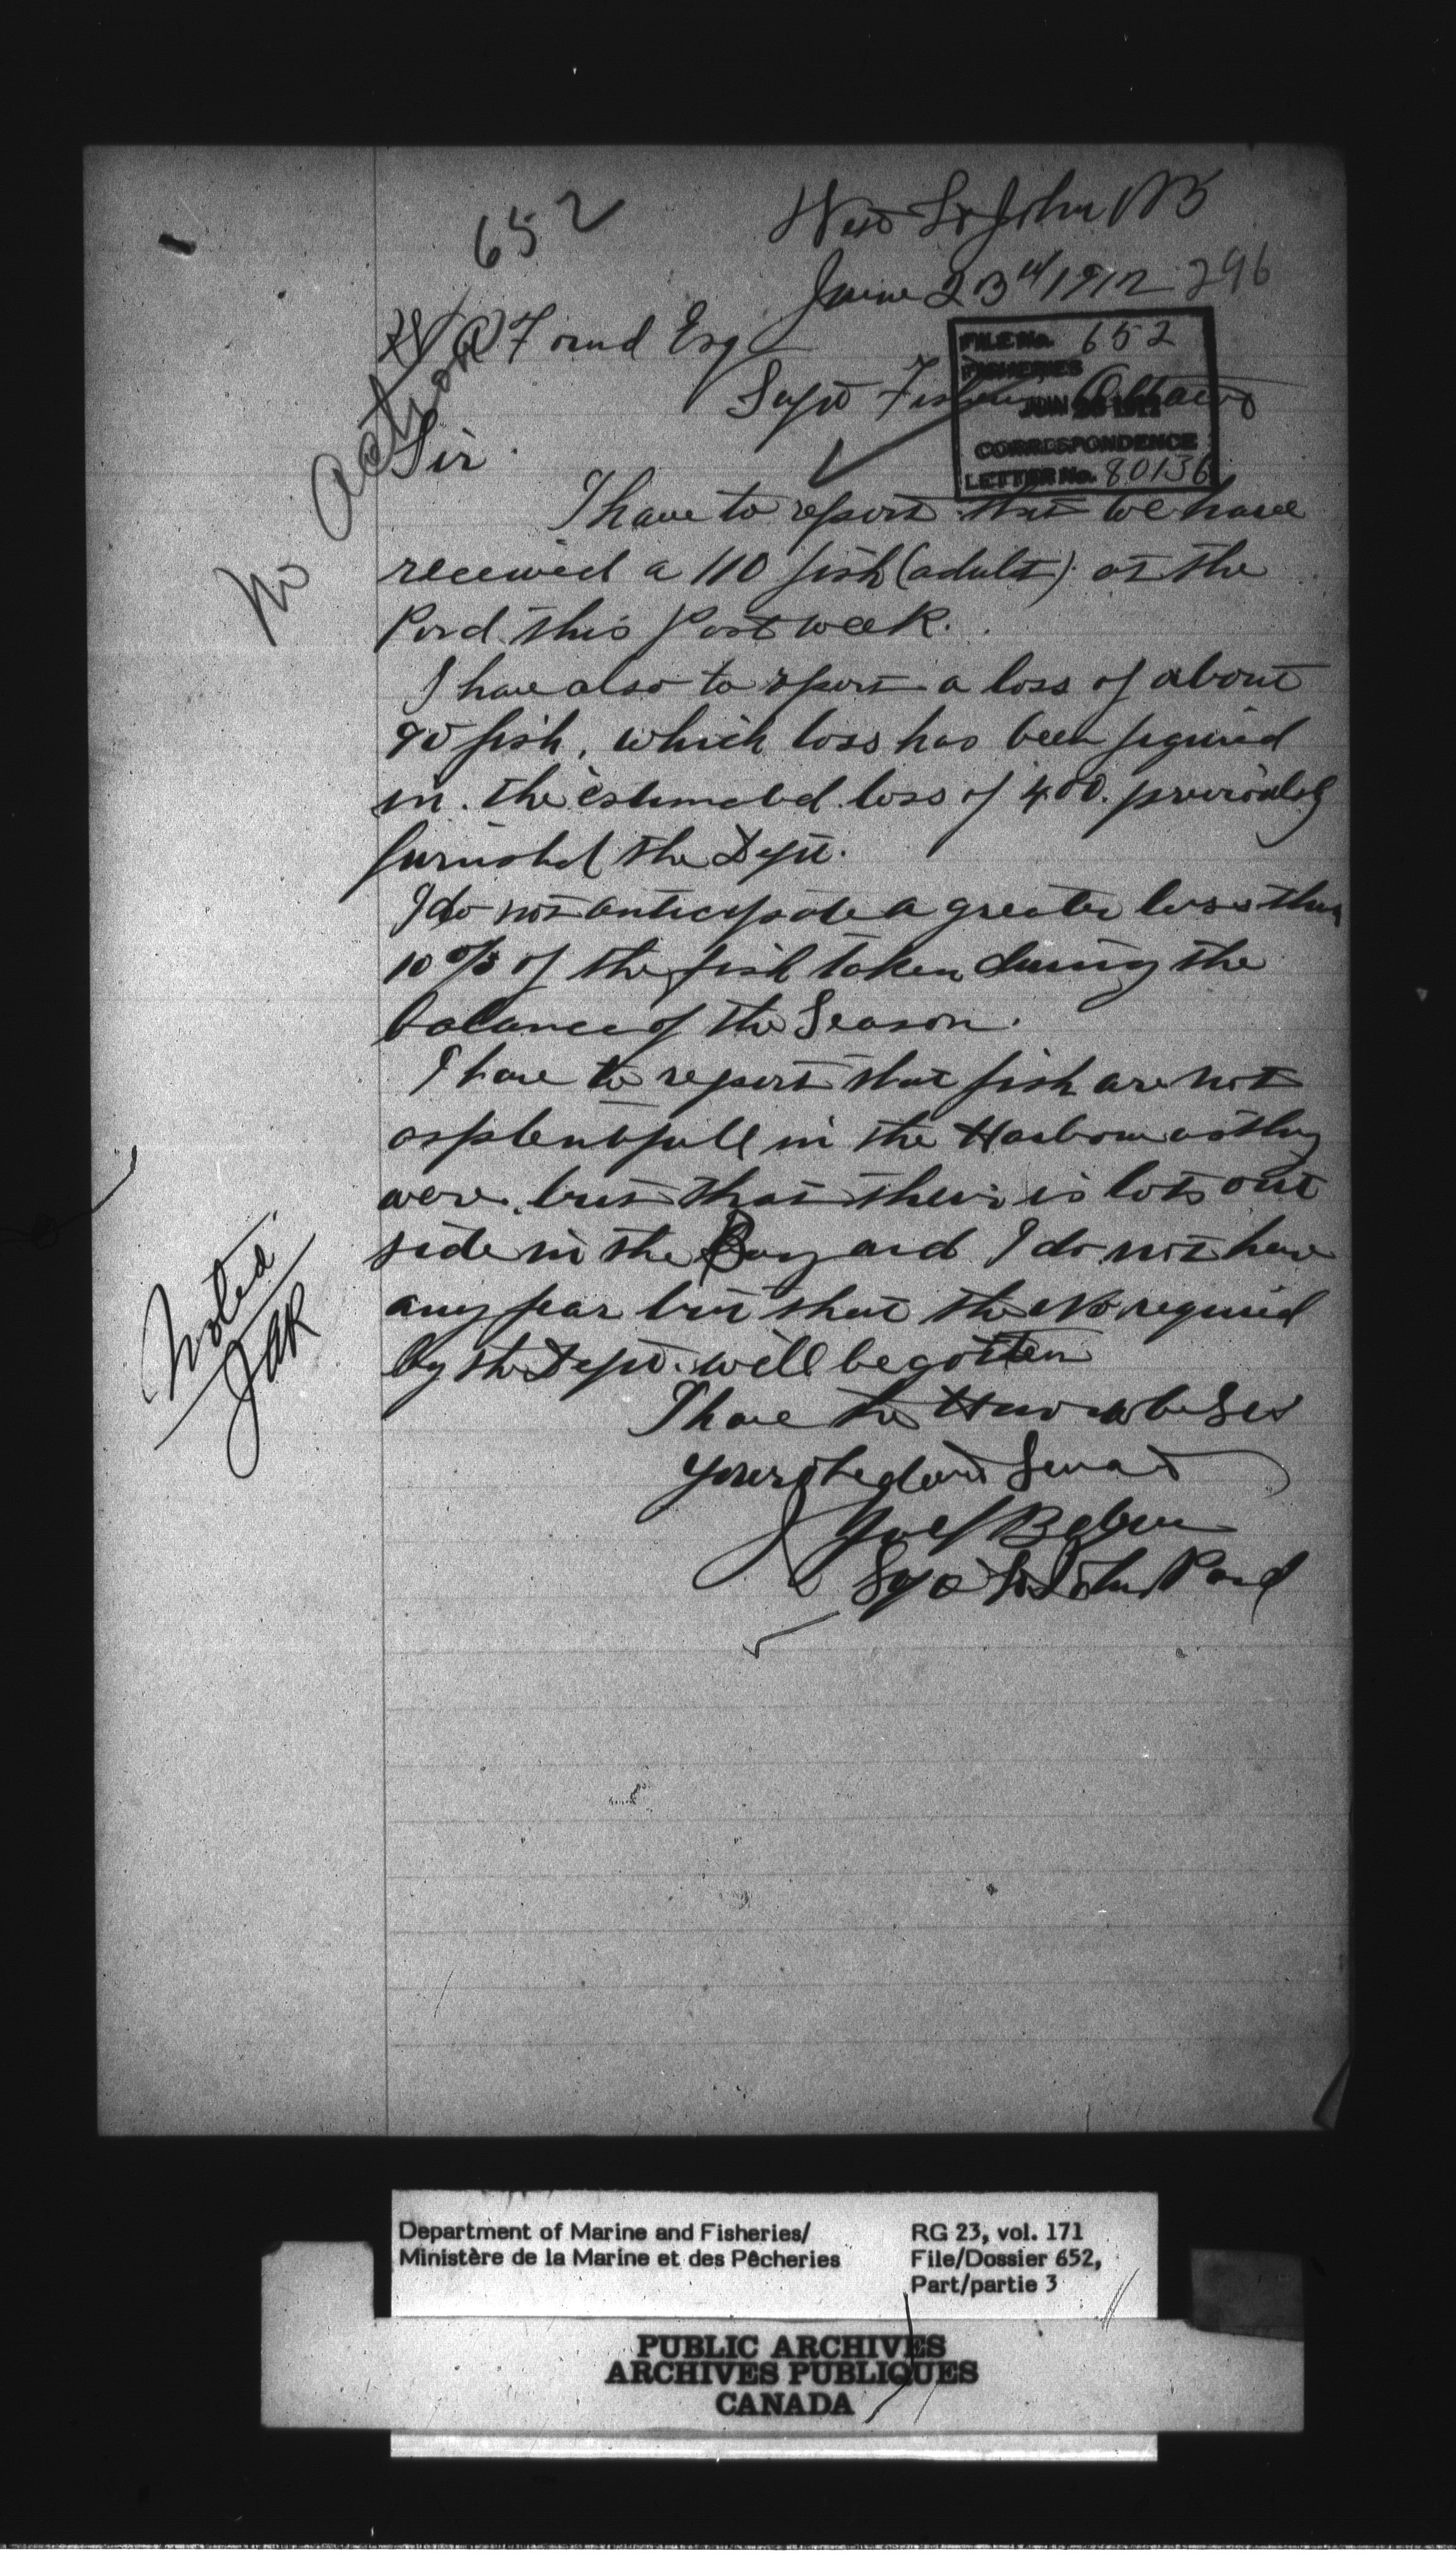 652
West St John NB
June 23rd 1912 296
W A Found Esq
Supt Fisheries Ottawa
FILE No. 652
FISHERIES
JUN
CORRESPONDENCE
LETTER No. 80136
No Action
Sir.
I have to report that we have
received a 110 fish (adult) at the
Pond this past week.
I have also to report a loss of about
90 fish, which loss has been figured
in. the estimated loss of 400. previously
furnished the Dept.
I do not anticipate a greater loss than
10% of the fish taken during the
balance of the Season.
I have to report that fish are not
as plentyfull in the Harbour as they
were. but that their is lots out
side in the Bay and I do not have
any fear but that the No required
by the Dept. will be gotten
Noted
JAR
I have the Honor to be Sir
Your obedant Servant
Supt St John Pond
Department of Marine and Fisheries/
Ministère de la Marine et des Pêcheries
RG 23, vol. 171
File/Dossier 652,
Part/partie 3
PUBLIC ARCHIVES
ARCHIVES PUBLIQUES
CANADA